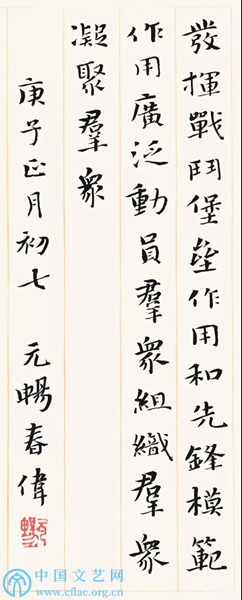 發揮戰鬥堡壘作用和先鋒模範
作用廣泛動員羣衆組織羣衆
凝聚羣衆
庚子正月初七 元暢春偉
中国文艺网
www.cflac.org.cn